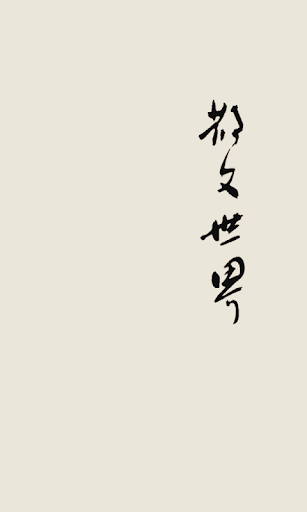 散文世界